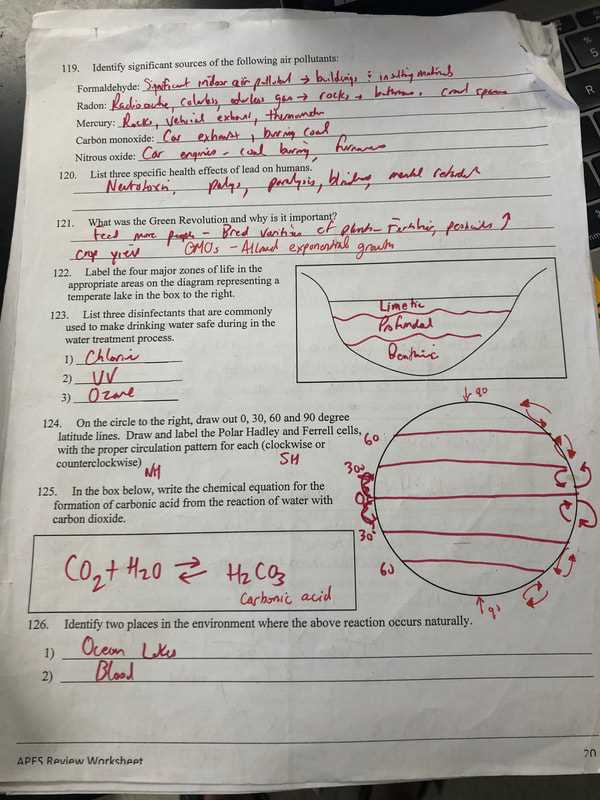 119. Identify significant sources of the following air pollutants:
Formaldehyde: Significant indoor air pollutant → buildings & insulting materials
Radon: Radioactive, colorless, odorless gas → rocks → basements, crawl spaces
Mercury: Rocks, vehicial exhaust, thermometer
Carbon monoxide: Car exhaust, burning coal
Nitrous oxide: Car engines - coal burning, furnaces
120. List three specific health effects of lead on humans.
Neurotoxin, palsy, paralysis, blindness, mental
121. What was the Green Revolution and why is it important?
Feed more people - Bred varities of plants - Fertilizer, pesticides ↑
crop yield GMOs - Allowed exponential growth
122. Label the four major zones of life in the
appropriate areas on the diagram representing a
temperate lake in the box to the right.
Limetic
Profundal
Benthic
123. List three disinfectants that are commonly
used to make drinking water safe during in the
water treatment process.
1) Chlorine
2) UV
3) Ozone
124. On the circle to the right, draw out 0, 30, 60 and 90 degree
latitude lines. Draw and label the Polar Hadley and Ferrell cells,
with the proper circulation pattern for each (clockwise or
counterclockwise)
NH SH
↓ 90
60
30
30
60
↑ 90
125. In the box below, write the chemical equation for the
formation of carbonic acid from the reaction of water with
carbon dioxide.
CO2 + H2O ⇌ H2CO3
Carbonic acid
126. Identify two places in the environment where the above reaction occurs naturally.
1) Ocean Lakes
2) Blood
APES Review Worksheet
20